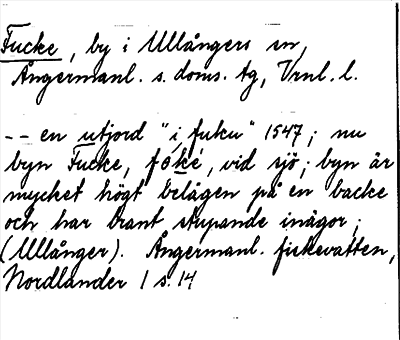 Fucke, by i Ullångers sn,
Ångermanl. s. doms. tg, Vrnl. l.
-- en utjord "i fuku" 1547; nu
byn Fucke, fóké, vid sjö; byn är
mycket högt belägen på en backe
och har brant stupande inägor;
(Ullånger). Ångermanl. fiskevatten,
Nordlander 1 s. 14